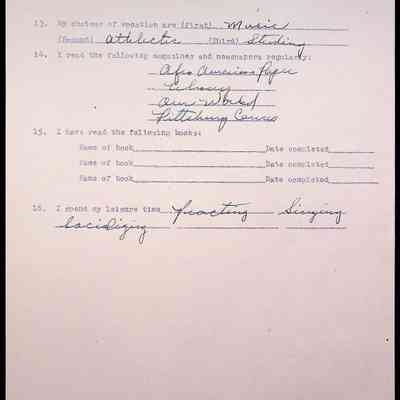 13. My choices of vocation are (first) Music
(Second) Athletic (Third) Studing
14. I read the following magazines and newspapers regularly:
Afro American Paper
Ebony
Our World
Pittsburg Courier
15. I have read the following books:
Name of book Date completed
Name of book Date completed
Name of book Date completed
16. I spend my leisure time Practing Singing
Socilizing